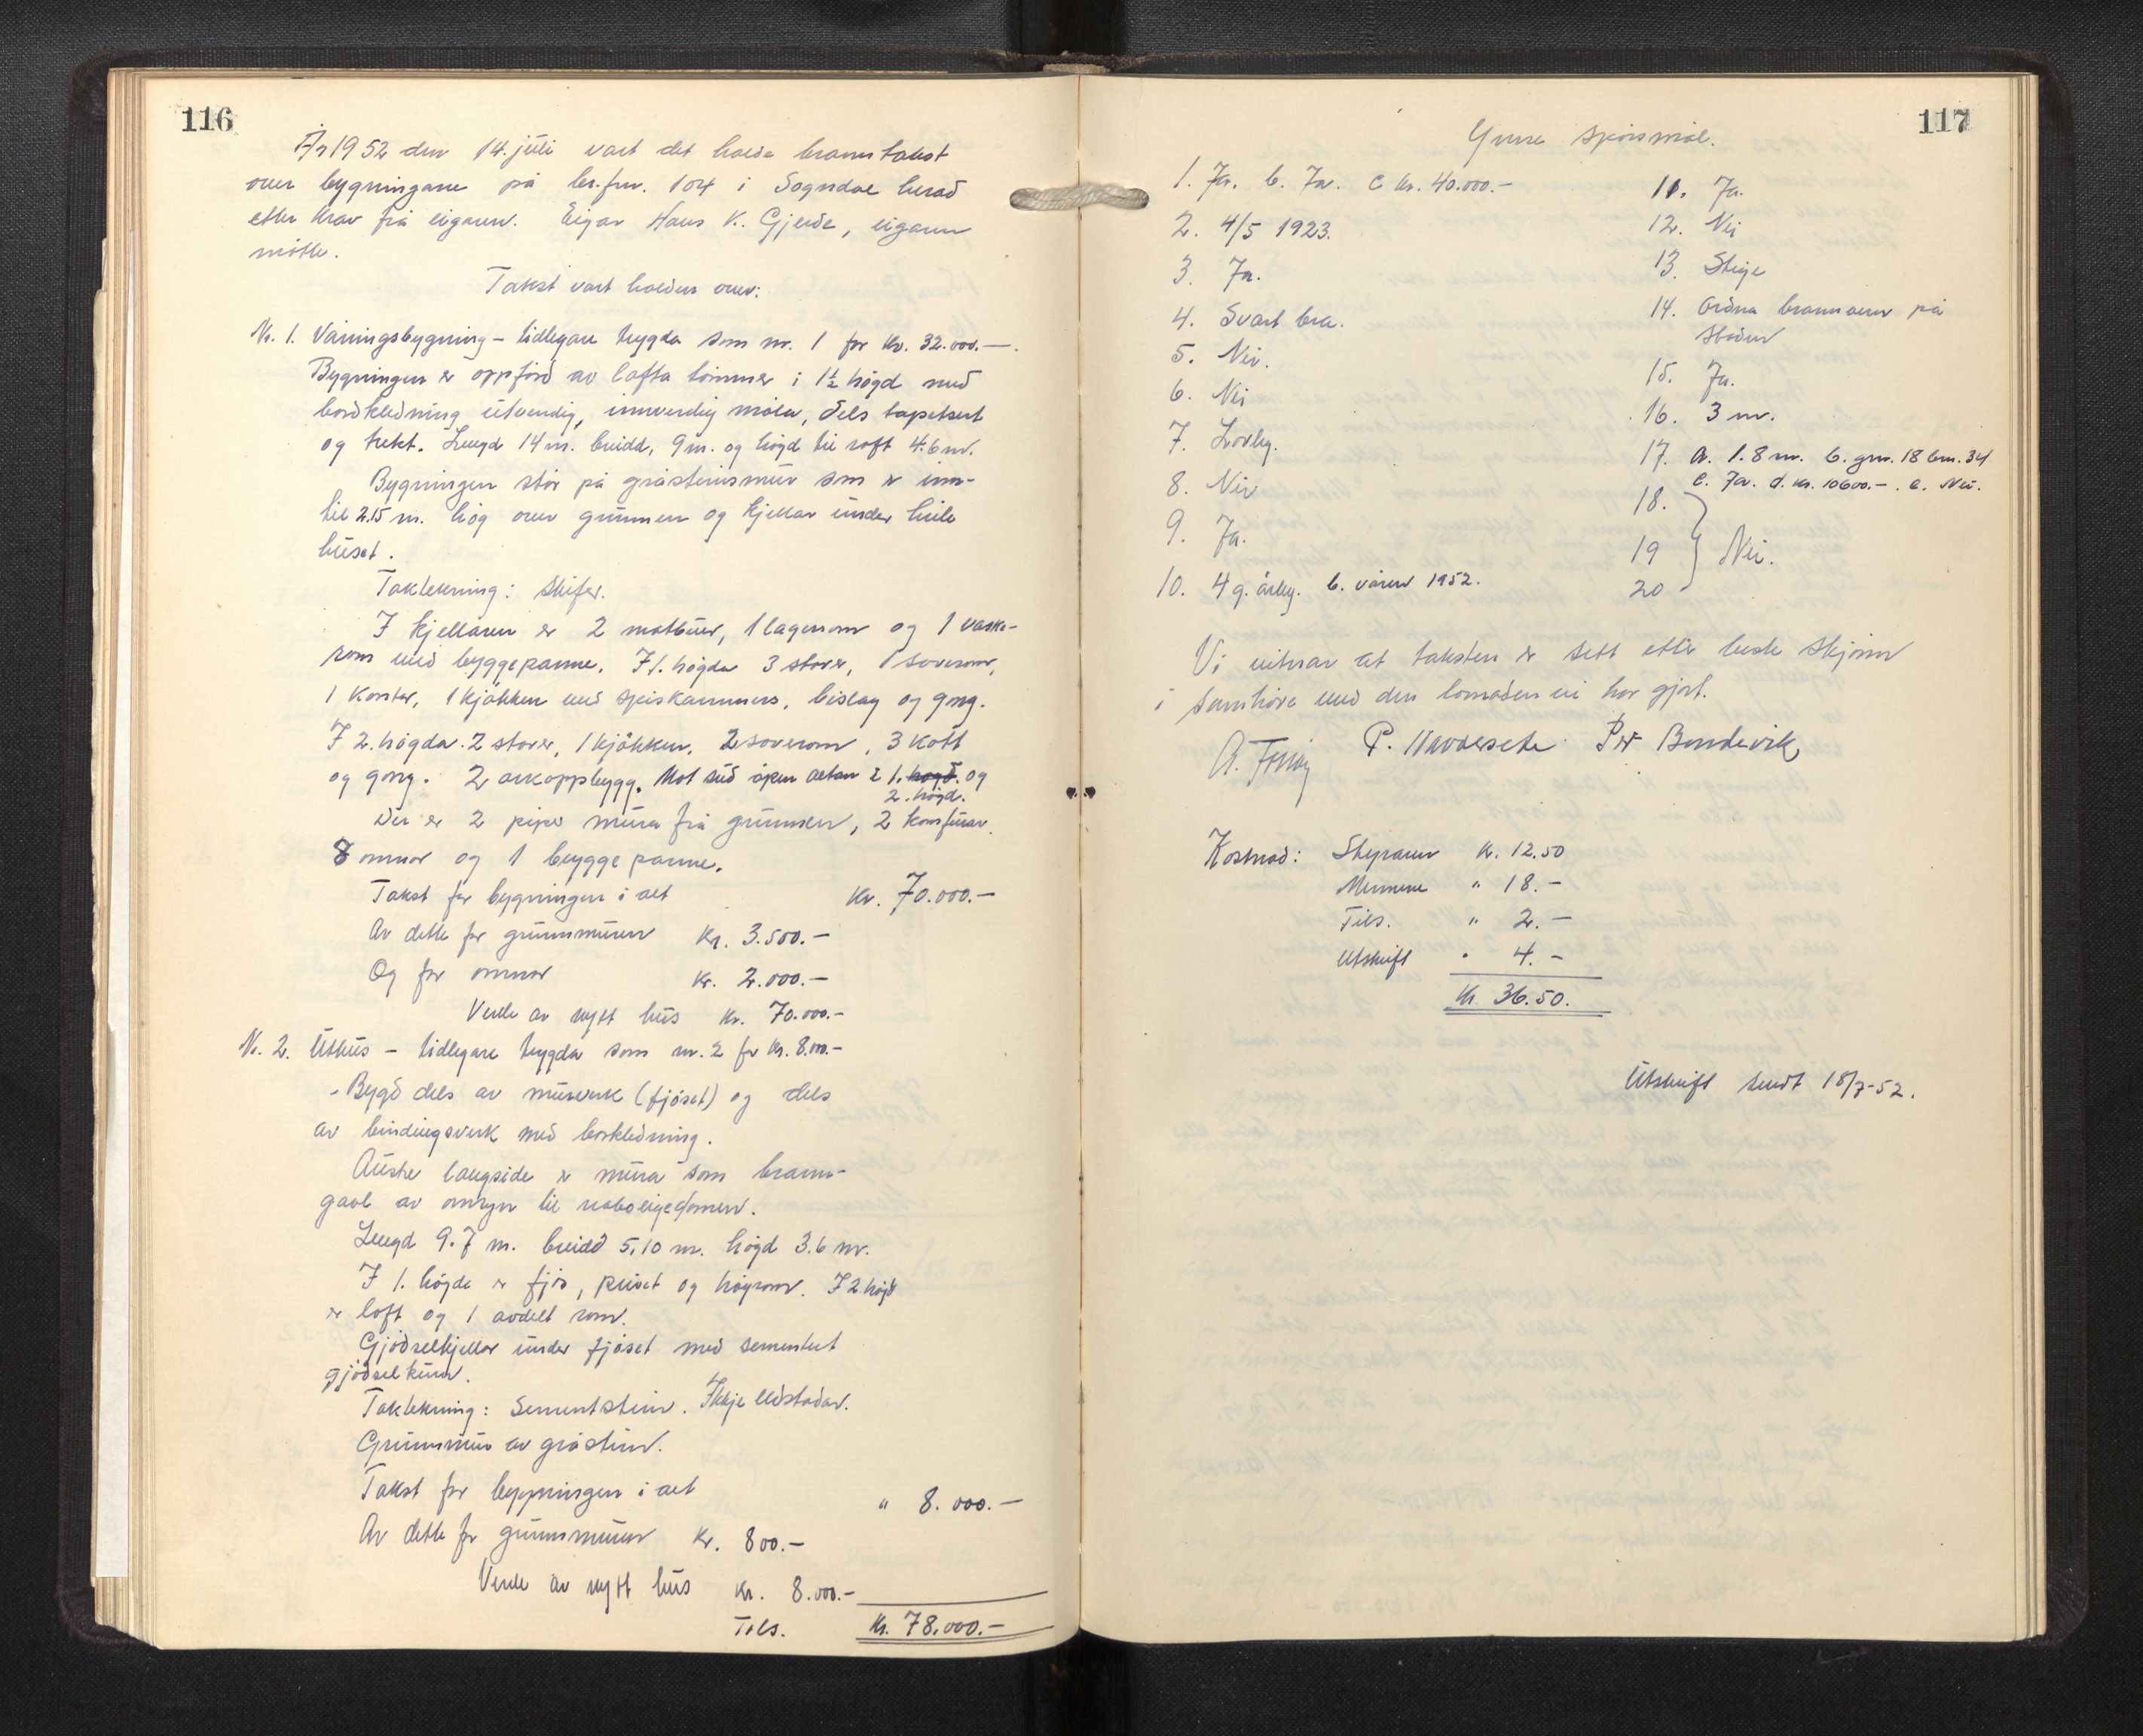 116
År 1952 den 14. juli vart det halde branntakst
over bygningane på br.fnr. 104 i Sogndal herad
etter krav frå eigaren. Eigar Hans K. Gjerde, eigaren
møtte.
Takst vart halden over:
Nr. 1. Våningsbygning – tidlegare trygda som nr. 1 for kr. 32.000.—.
Bygningen er oppförd av lafta tömmer i 1½ högd med
bordkledning utvendig, innvendig måla, dels tapetsert
og trekt. Lengd 14 m. breidd, 9 m. og högd til raft 4.6 m.
Bygningen står på gråsteinsmur som er inn-
til 2.15 m. høg over grunnen og kjellar under heile
huset.
Taktekning: Skifer.
I kjellaren er 2 matbuer, 1 lagerrom og 1 vaske-
rom med bryggepanne. I 1. högda 3 stover, 1 soverom,
1 kontor, 1 kjökken med speiskammers, bislag og gong.
I 2. högda 2 stover, 1 kjökken, 2 soverom, 3 kott
og gong. 2 arkoppbygg. Mot sud open altan i 1. högd. og
2. högd.
Der er 2 piper mura frå grunnen, 2 komfurar
8 omnar og 1 bryggepanne.
Takst for bygningen i alt kr. 70.000.—
Av dette for grunnmuren kr. 3.500.—
Og for omnar kr. 2.000.—
Verde av nytt hus kr. 70.000.—
Nr. 2. Uthus – tidlegare trygda som nr. 2 for kr. 8.000.—
Bygd dels av murverk (fjöset) og dels
av bindingsverk med bordkledning.
Austre langside er mura som brann-
gavl av omsyn til naboeigedomen.
Lengd 9.7 m. breidd 5.10 m. högd 3.6 m.
I 1. högda er fjös, privet og höyrom. I 2 högd
er loft og 1 avdelt rom.
Gjödselkjellar under fjöset med sementert
gjödselkum.
Taktekning: Sementstein. Ikkje eldstadar.
Grunnmur av gråstein.
Takst for bygningen i alt " 8.000.—
Av dette for grunnmuren kr. 800.—
Verde av nytt hus kr. 8.000.—
Tils. kr. 78.000.—
117
Ymse spörsmål.
1. Ja. b. Ja. c kr. 40.000.—
2. 4/5 1923.
3. Ja.
4. Svært bra.
5. Nei.
6. Nei
7. Lovleg.
8. Nei
9. Ja.
10. 4 g. årleg. b. våren 1952.
11. Ja.
12. Nei
13. Stige
14. Ordna brannvern på
staden
15. Ja.
16. 3 m.
17. a. 1.8 m. b. gnr. 18 bnr. 34
c. Ja. d. kr. 10600.— . e. Nei.
18.
19 } Nei.
20
Vi vitnar at taksten er sett etter beste skjönn
i samhöve med den lovnaden vi har gjort.
P. Navarsete Per Bondevik
Kostnad: Styraren kr. 12.50
Mennene " 18.—
Tils. " 2.—
Utskrift " 4.—
Kr. 36.50.
Utskrift sendt 18/7-52.